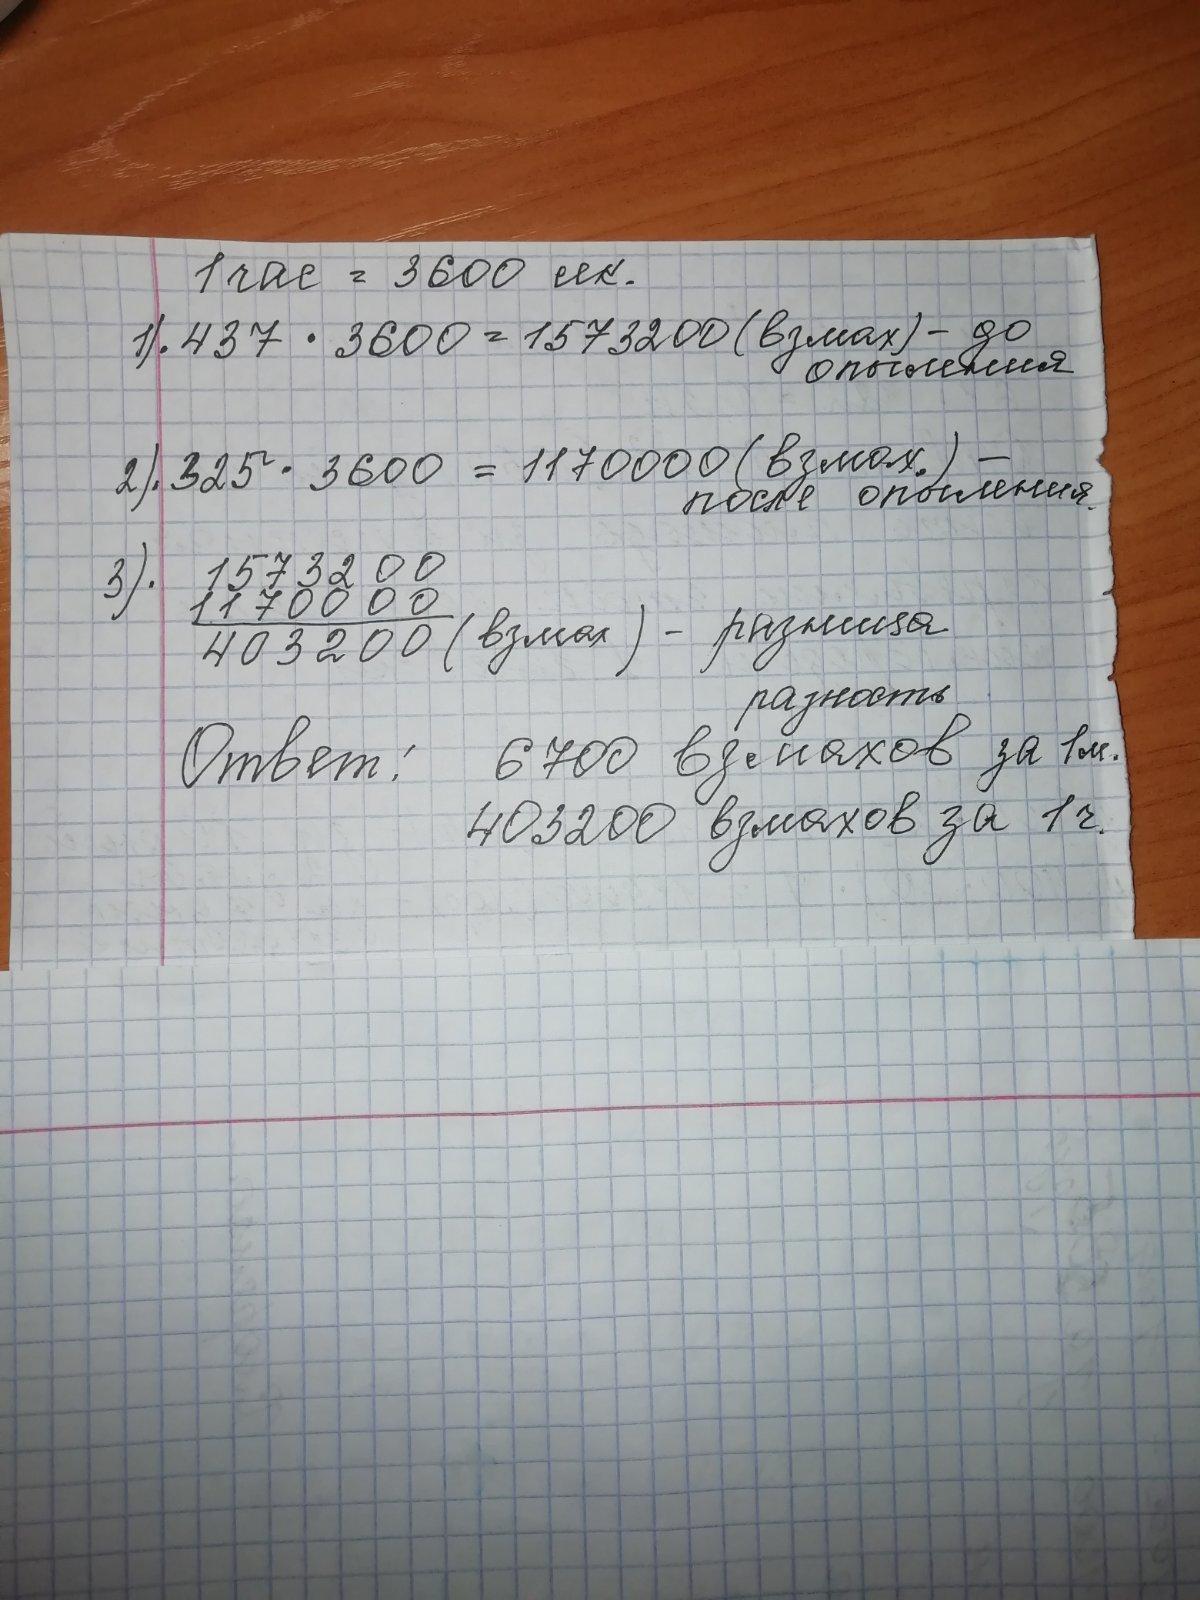 1 час = 3600 сек.
1). 437 · 3600 = 1573200 (взмах) - до
опыления
2). 325 · 3600 = 1170000 (взмах.) -
после опыления.
3). 1573200
1170000
403200 (взмах) - разница
разность
Ответ: 6700 взмахов за 1м.
403200 взмахов за 1 ч.